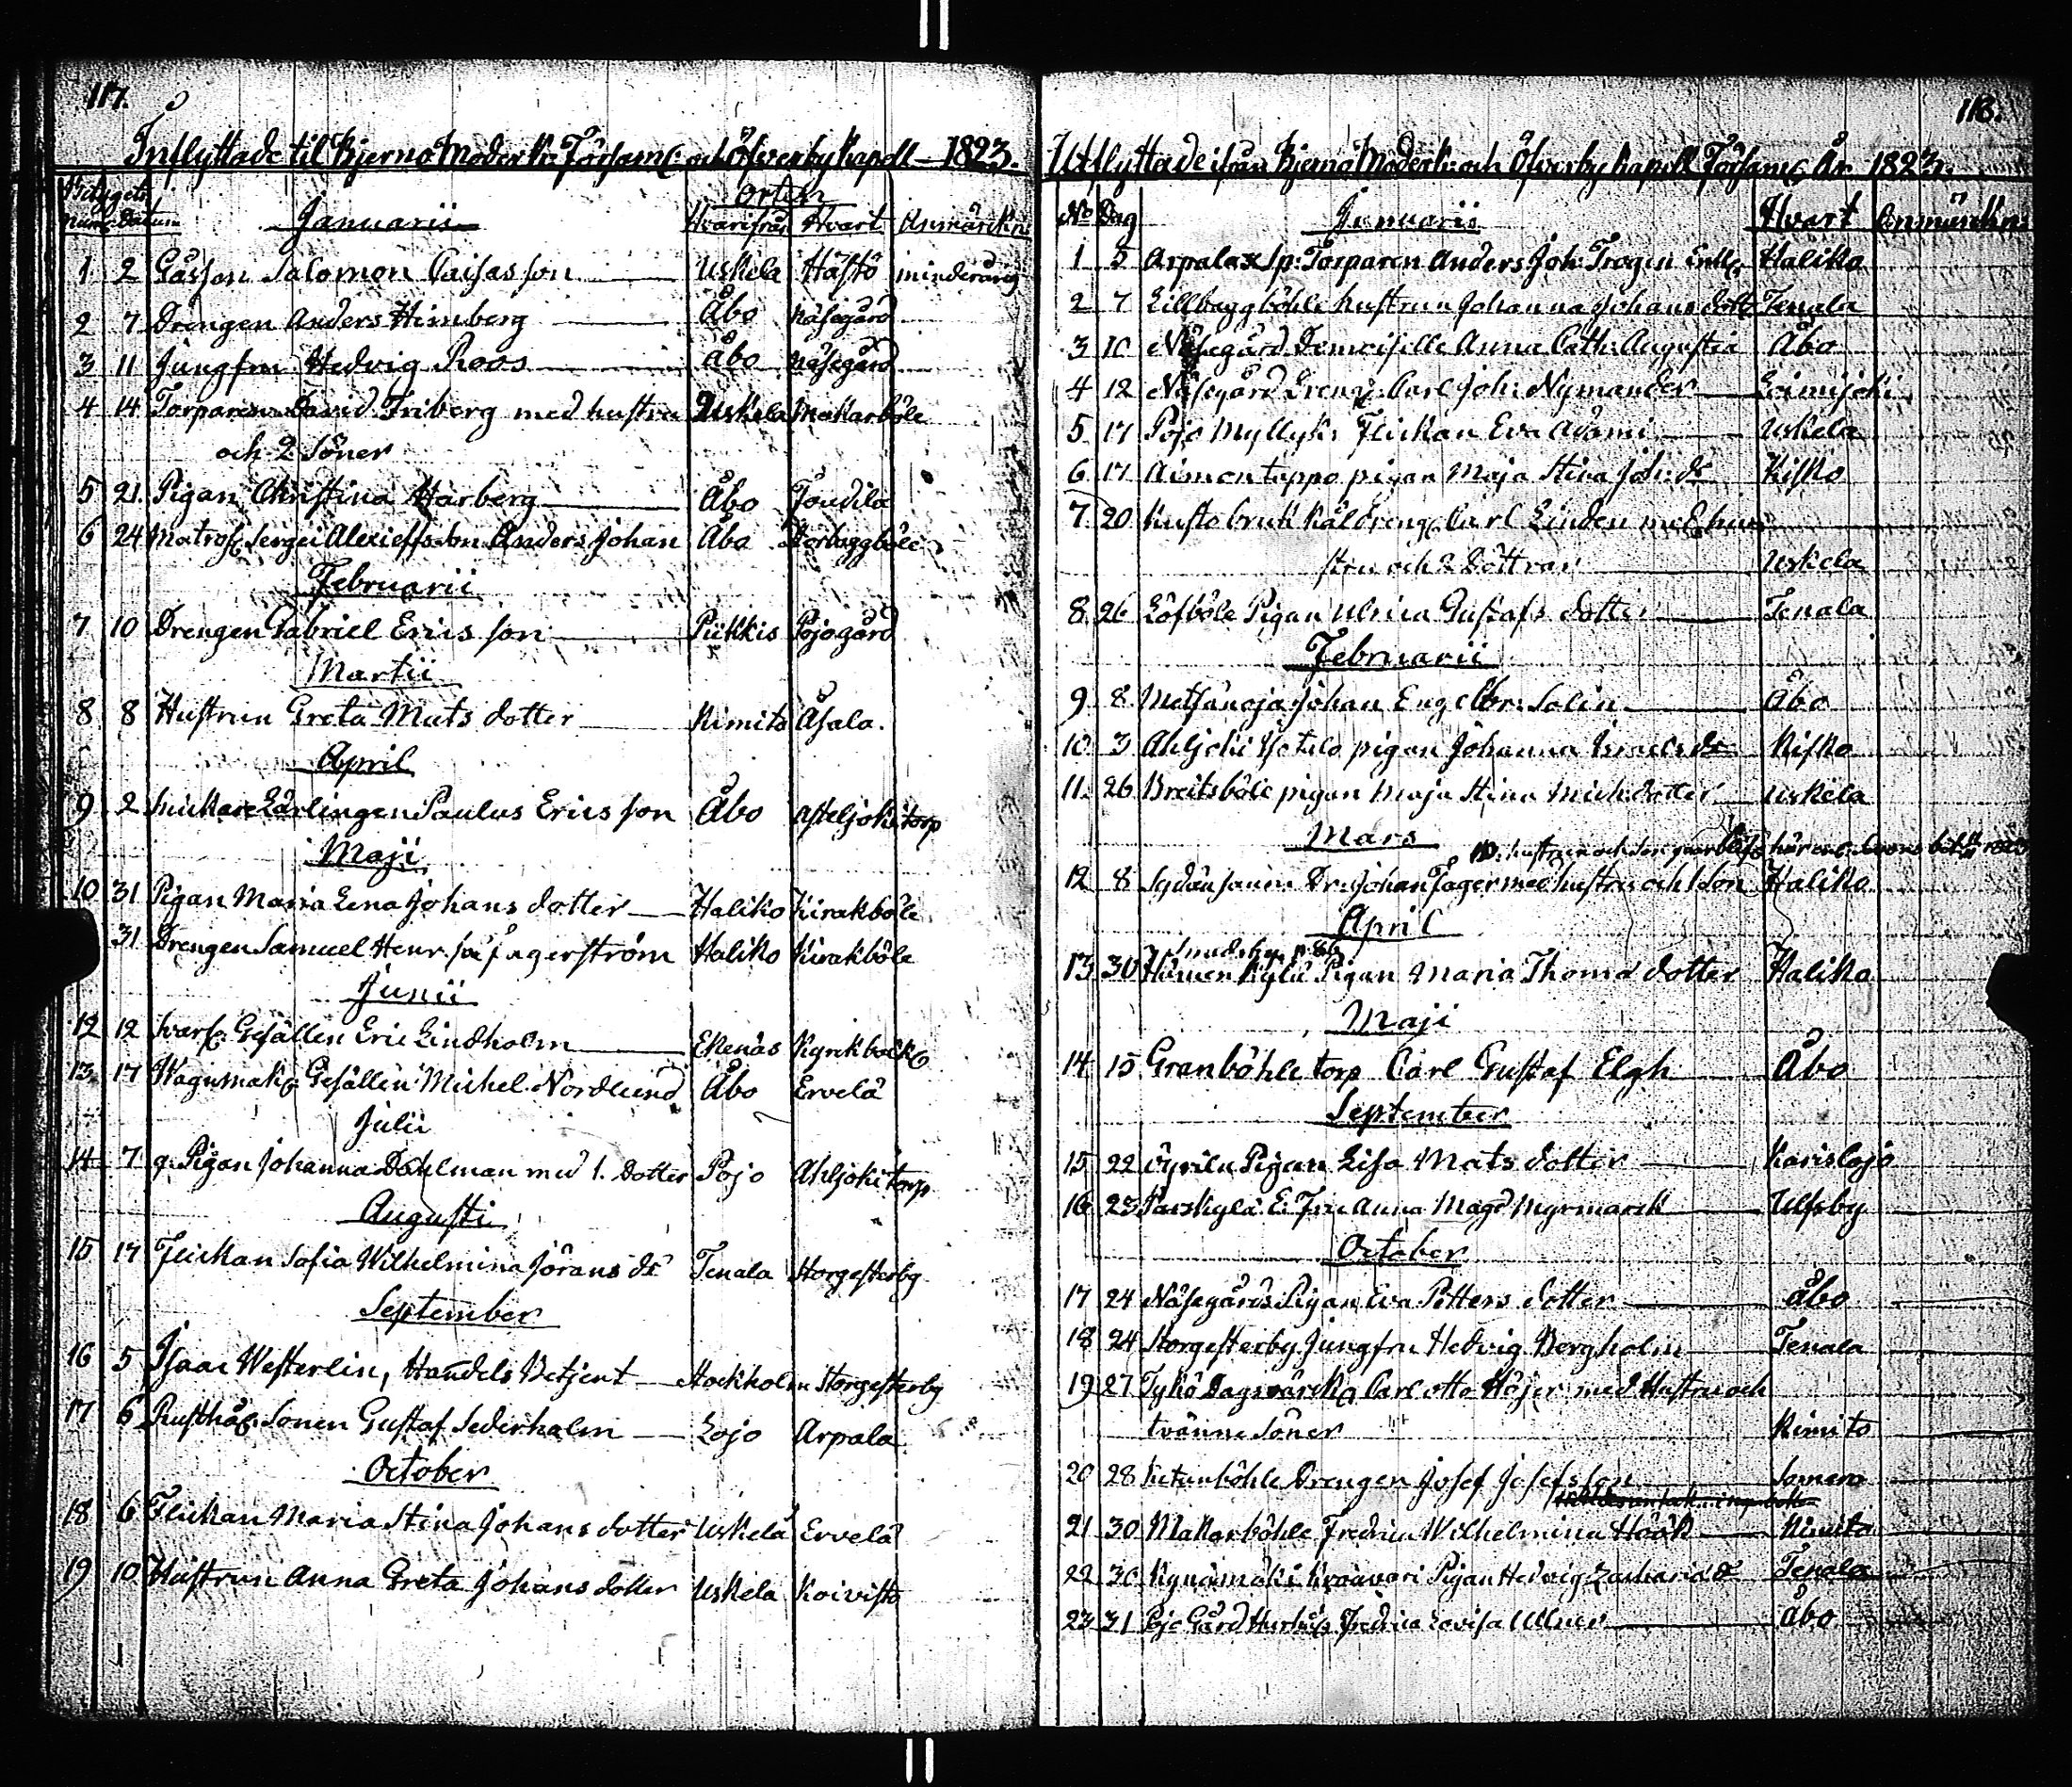 117.
Inflyttade til Bjerno Moder k: Församl: och Öfverby Kapell - 1823.
Betygets Orten
num: Datum Januarii Hvarifrån Hvart Anmärkn:
1 2 Gåssen Salomon Caisas son Uskela Håstö minderårig
2 7 Drengen Anders Himberg Åbo Näsegård
3 11 Jungfrun Hedvig Roos Åbo Näsegård
4 14 Torparen David Friberg med hustru Uskela Makarböle
och 2 Söner
5 21 Pigan Christina Harberg Åbo Toudila
6 24 Matros: Sergei Alexieffs son Anders Johan Åbo
Februarii
7 10 Drengen Gabriel Erics son Piikkis Pojogård
Martii
8 8 Hustrun Greta Mats dotter Kimito Åsala.
April
9 2 Snickare Lärlingen Paulus Erics son Åbo Asteljoki torp
Maji
10 31 Pigan Maria Lena Johans dotter Haliko Kirakböle
31 Drengen Samuel Henr: son Fagerström Haliko Kirakböle
Junii
12 12 Svarf: Gesällen Eric Lindholm Ekenäs Kyrkbacka
13 17 Wagnmak: Gesällen Michel Nordlund Åbo Ervelä
Julii
14 7 g. Pigan Johanna Dahlman med 1. Dotter Pojo Ahljoki torp
Augusti
15 17 Flickan Sofia Wilhelmina Jörans dr Tenala Storgesterby
September
16 5 Isaac Westerlin, Handels Betjent Stockholm Storgesterby
17 6 Rusthål: Sonen Gustaf Sederholm Lojo Arpala
October
18 6 Flickan Maria Stina Johans dotter Uskela Ervelä
19 10 Hustrun Anna Greta Johans dotter Uskela Koivisto
118.
Utflyttade ifrån Bjernå Moderk: och Öfverby Kapell Församl: År 1823.
No Dag Januarii Hvart Anmärkn:
1 5 Arpalax Torparen Anders Joh: Trogen Haliko
2 7 Lillbäggböhle hustrun Johanna Johans dott: Tenala
3 10 Näsegård Demoiselle Anna Cath: Augustia Åbo
4 12 Näsegård Dreng: Carl Joh: Nymander Loimijoki
5 17 Pojo Myllyk: Flickan Eva Adami Uskela
6 17 Aimontappo pigan Maja Stina Joh: dr Kisko
7 20 Kusto bruk Kåldreng: Carl Linden med hu
stru och 2 Döttrar Uskela
8 26 Löfböle Pigan Ulrica Gustafs dotter Tenala
Februarii
9 8 Metsänoja Johan Engelbr: Solin Åbo
10 3 Ahljoki pigan Johanna Israels dr Kisko
11. 26 Breitsböle pigan Maja Stina Mich: dotter Uskela
Mars
12 8 Sydänsaari Dr: Johan Fager med hustru och 1 son Haliko
April
13 30 Hämenkylä Pigan Maria Thomæ dotter Haliko
Maji
14 15 Granböhle torp Carl Gustaf Elgh Åbo
September
15 22 Pigan Lisa Mats dotter Karislojo
16 23 Pærskylä E. Fru Anna Magd Myrmarck Ulfsby
October
17 24 Näsegårds Pigan Eva Petters dotter Åbo
18 24 Storgesterby Jungfru Hedvig Bergholm Tenala
19 27 Tykö Dagsvärcka Carl Otto Höjer med Hustru och
tvänne Söner Kimito
20 28 Ketunböhle Drengen Josef Josefs son Somero
21 30 Makarböhle Fredrica Wilhelmina Höök Kimito
22 30 Kynämäki Pigan Hedvig Zacharia dr Tenala
23 31 Pojo Gård Hush: Fredrica Lovisa Ullner Åbo